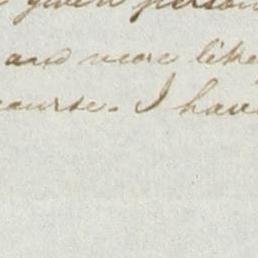 given person
and more like
course. I have